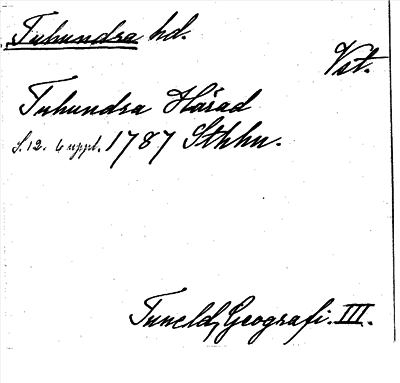 Tuhundra hd.
Vst.
Tuhundra Härad
S. 12. 4 uppl. 1787 Sthhm.
Tuneld, Geografi. III.